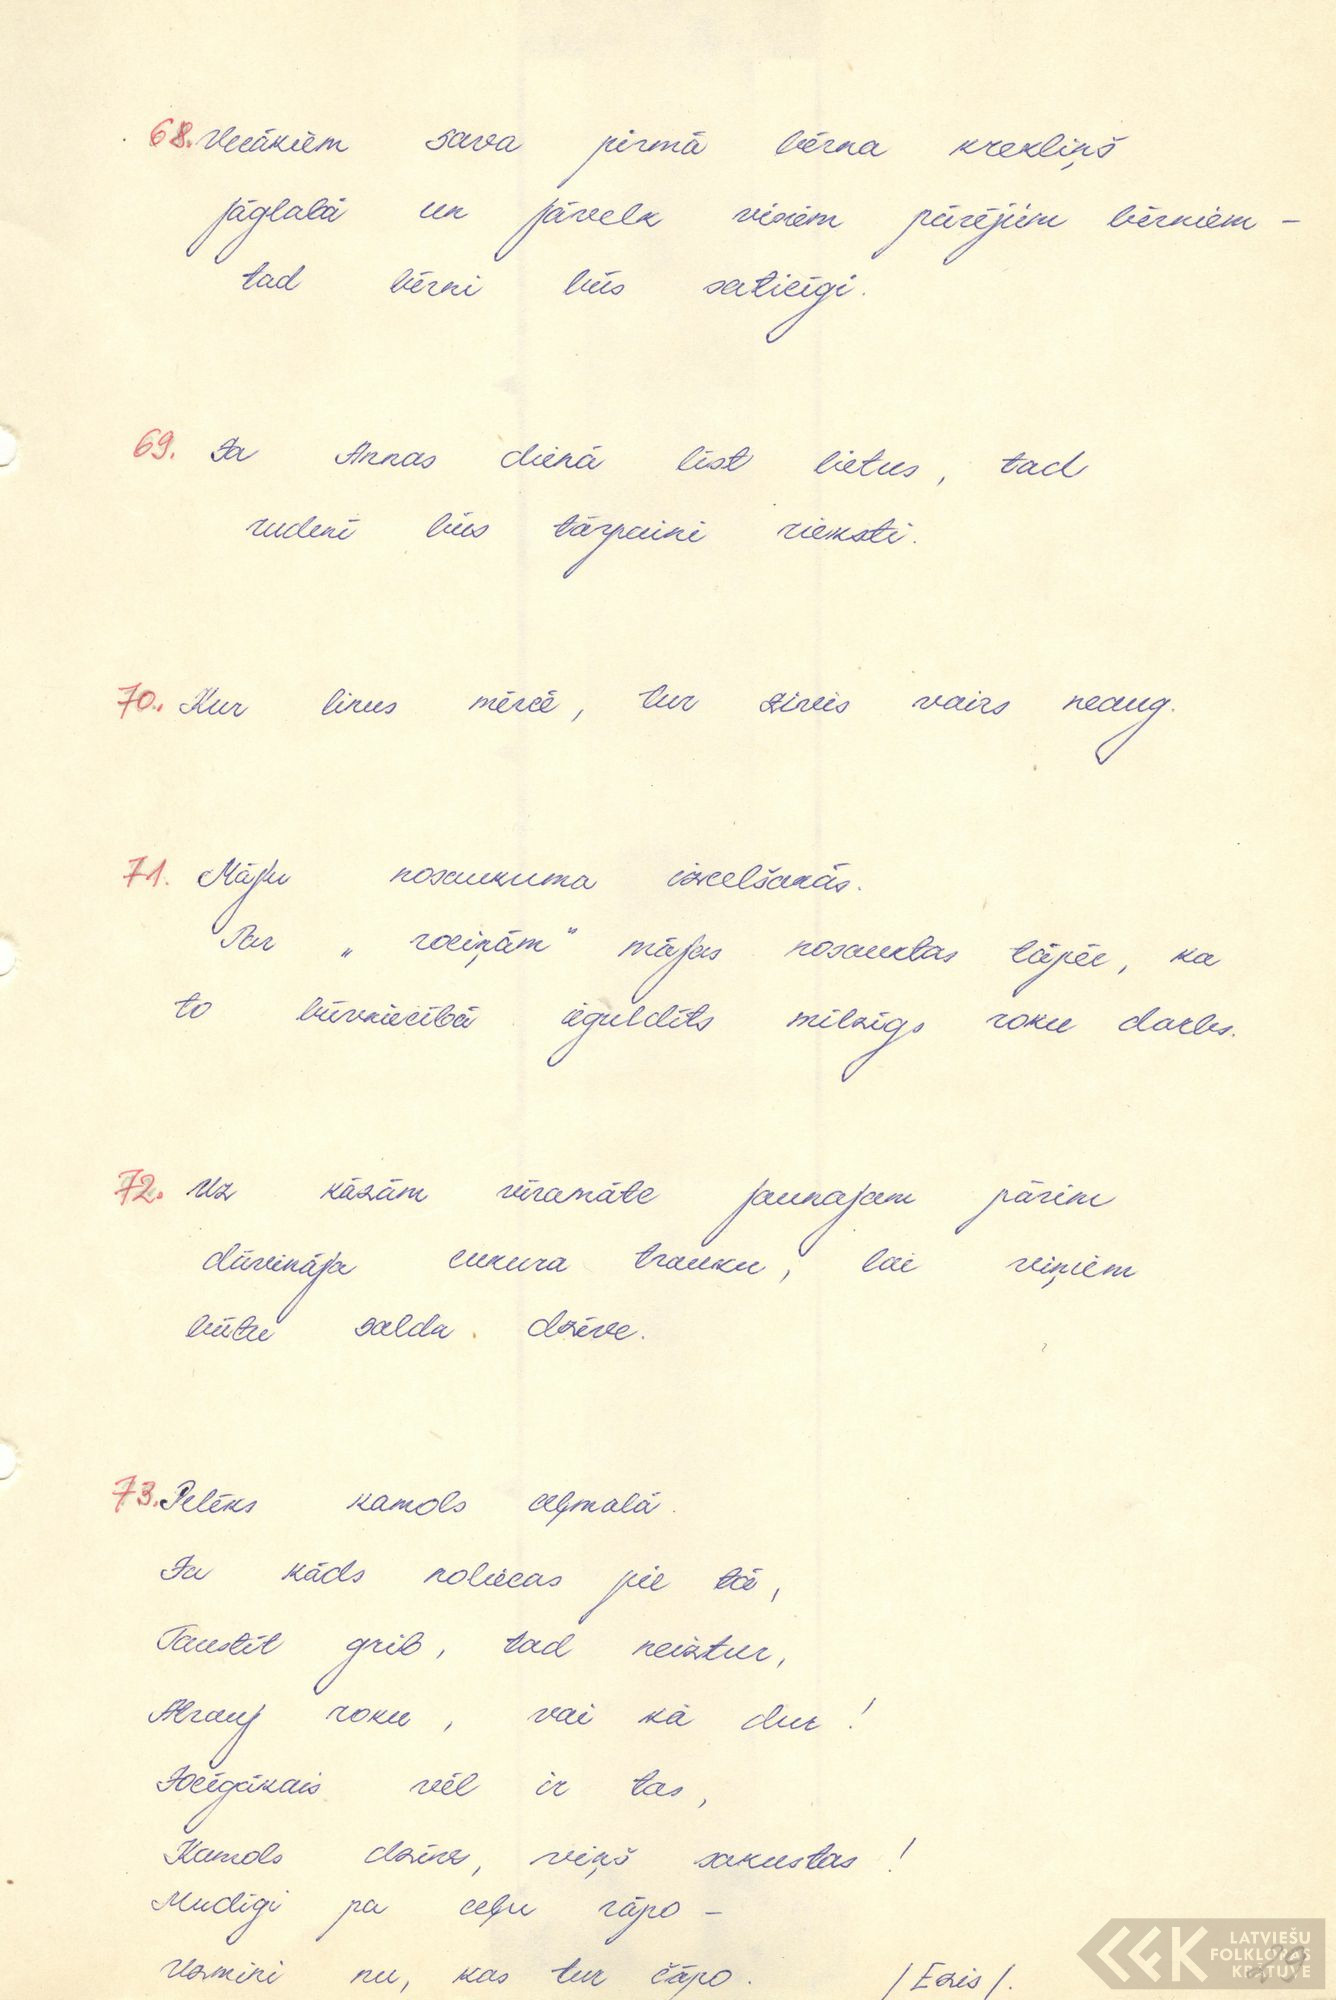 68. Vecākiem sava pirmā bērna krekliņš
jāglabā un jāvelk visiem pārējiem bērniem –
tad bērni būs saticīgi.
69. Ja Annas dienā līst lietus, tad
rudenī būs tārpaini rieksti.
70. Kur linus mērcē, tur zivis vairs neaug.
71. Māju nosaukuma izcelšanās.
Par „rociņām" mājas nosauktas tāpēc, ka
to būvniecībā ieguldīts milzīgs roku darbs.
72. Uz kāzām vīramāte jaunajam pārim
dāvināja cukura trauku, lai viņiem
būtu salda dzīve.
73. Pelēks kamols ceļmalā.
Ja kāds noliecas pie tā,
Taustīt grib, tad neiztur,
Atrauj roku, vai kā dur!
Jocīgākais vēl ir tas,
Kamols dzīvs, viņš sakustas!
Mudīgi pa ceļu rāpo –
Uzmini nu, kas tur čāpo. /Ezis/.
LATVIEŠU
FOLKLORAS
KRĀTUVE